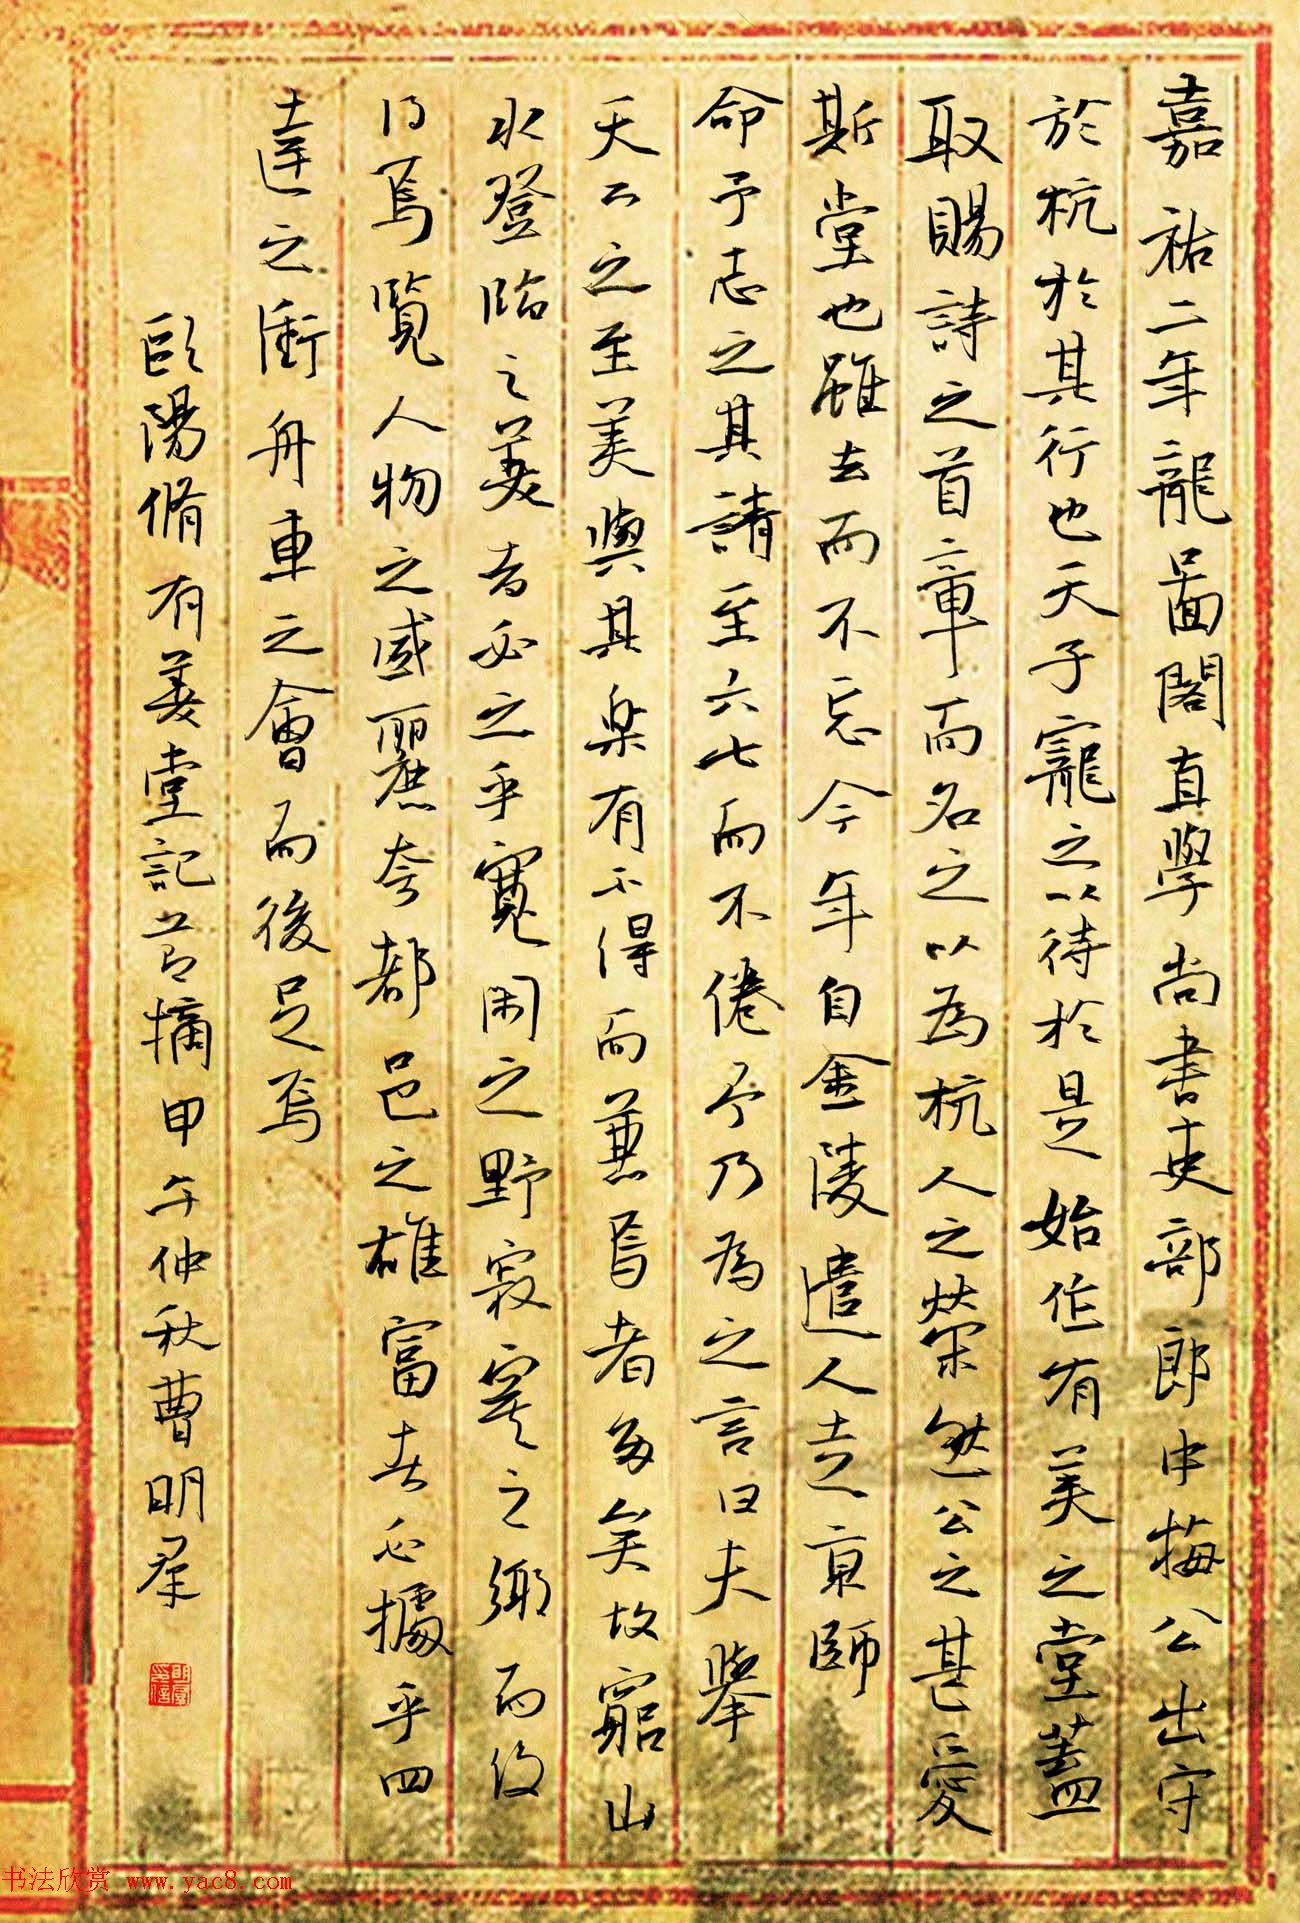 嘉祐二年龍圖閣直學尚書吏部郎中梅公出守
於杭於其行也天子寵之以詩於是始作有美之堂蓋
取賜詩之首章而名之以為杭人之榮然公之甚愛
斯堂也雖去而不忘今年自金陵遣人走京師
命予志之其請至六七而不倦予乃為之言曰夫舉
天下之至美與其樂有不得而兼焉者多矣故窮山
水登臨之美者必之乎寬閑之野寂寞之鄉而後
得焉覽人物之盛麗夸都邑之雄富者必據乎四
達之衝舟車之會而後足焉
歐陽脩有美堂記節摘甲午仲秋曹明泉
书法欣赏 www.yac8.com